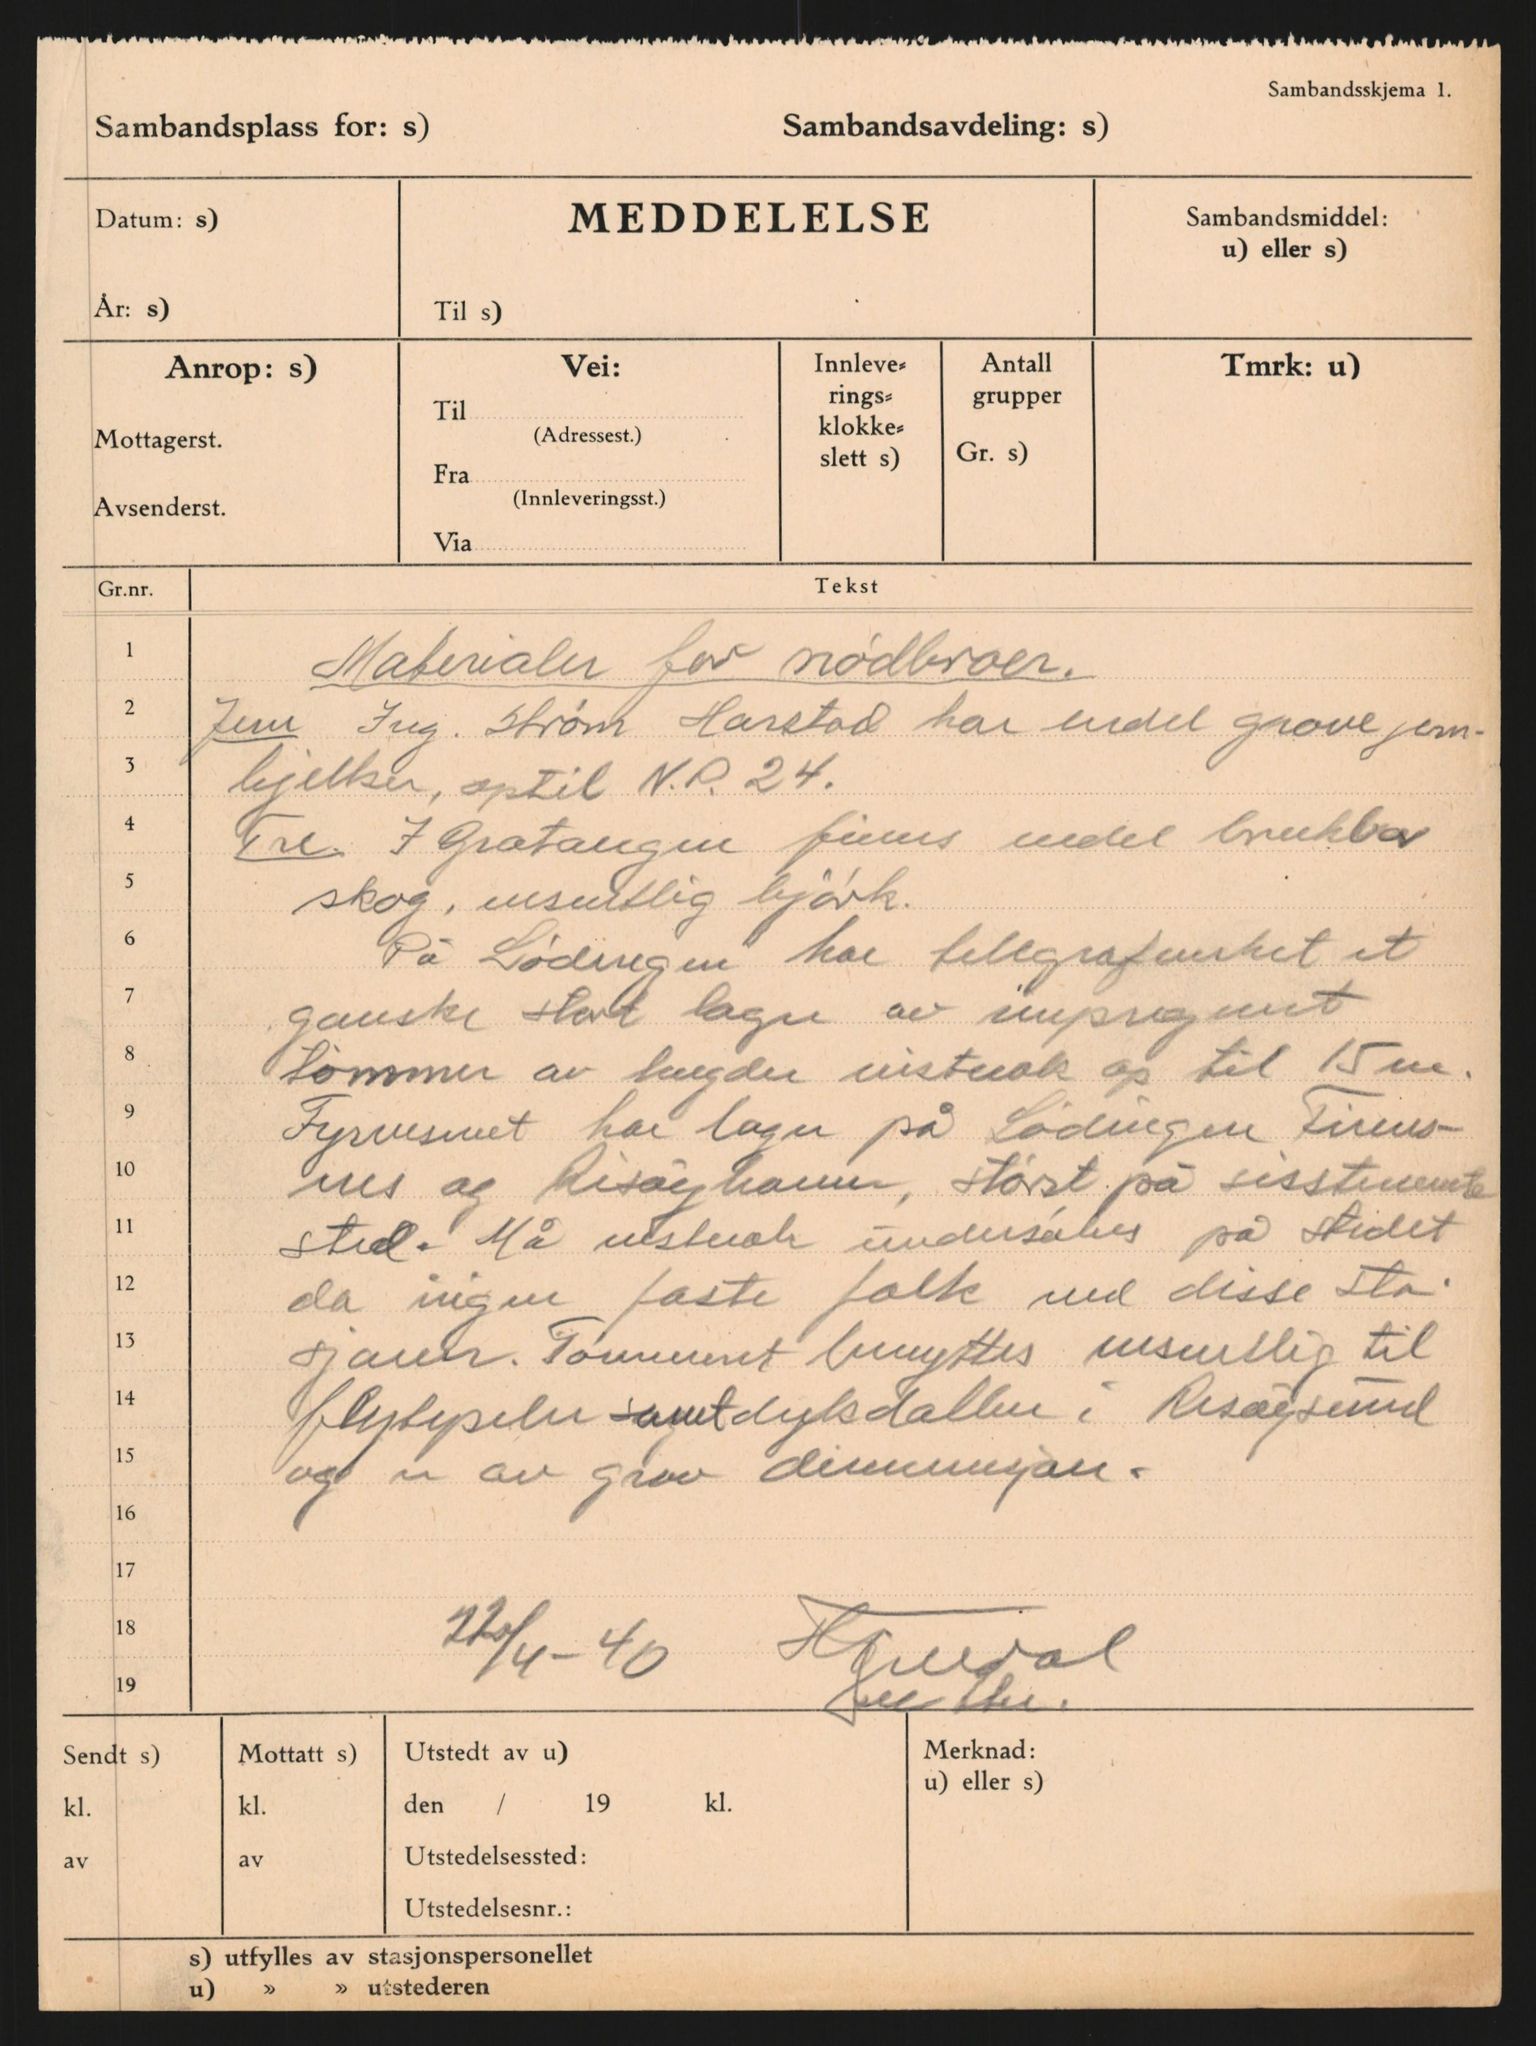 Sambandsskjema 1.
Sambandsplass for: s) Sambandsavdeling: s)
Datum: s)
År: s)
MEDDELELSE
Til s)
Sambandsmiddel:
u) eller s)
Anrop: s)
Mottagerst.
Avsenderst.
Vei:
Til
(Adressest.)
Fra
(Innleveringsst.)
Via
Innleve=
rings=
klokke=
slett s)
Antall
grupper
Gr. s)
Tmrk: u)
Gr.nr. Tekst
1 Materialer for nödbroer.
2 Jern Ing. Strøm Harstad har endel grove jern-
3 bjelker, optil N.P. 24.
4 Tre. I Gratangen finnes endel brukbar
5 skog, vesentlig bjørk.
6 På Lødingen har telegrafverket et
7 ganske stort lager av impregnert
8 tømmer av lengder vistnok op til 15 m.
9 Fyrvesenet har lager på Lödingen
10 nes og Risøyhamn, størst på sistnevnte
11 sted. Må vistnok undersøkes på stedet
12 da ingen faste folk ved disse sta-
13 sjoner. Tømmeret benyttes vesentlig til
14 samt dykdalber i Risøysund
15 og er av grov dimensjon.
16
17
18 22/4-40
19
Sendt s)
kl.
av
Mottatt s)
kl.
av
Utstedt av u)
den / 19 kl.
Utstedelsessted:
Utstedelsesnr.:
Merknad:
u) eller s)
s) utfylles av stasjonspersonellet
u) » » utstederen